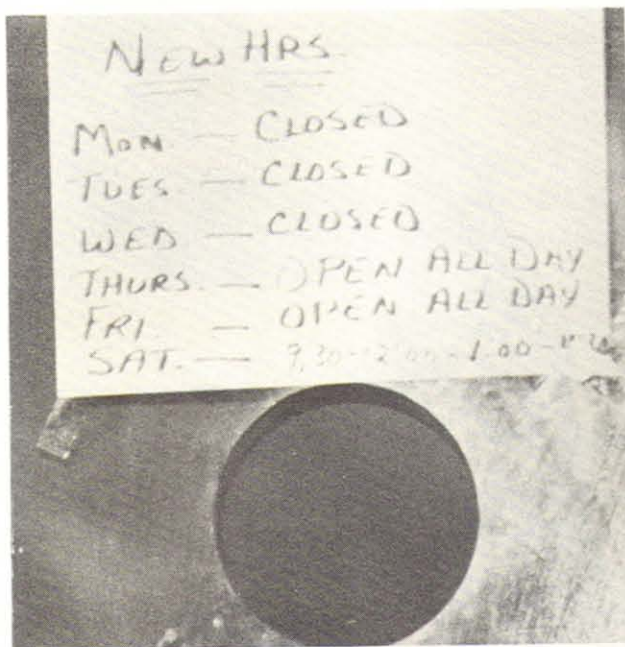 NEW HRS.
MON. — CLOSED
TUES. — CLOSED
WED — CLOSED
THURS. — OPEN ALL DAY
FRI. — OPEN ALL DAY
SAT. — 9.30-12.00-1.00-